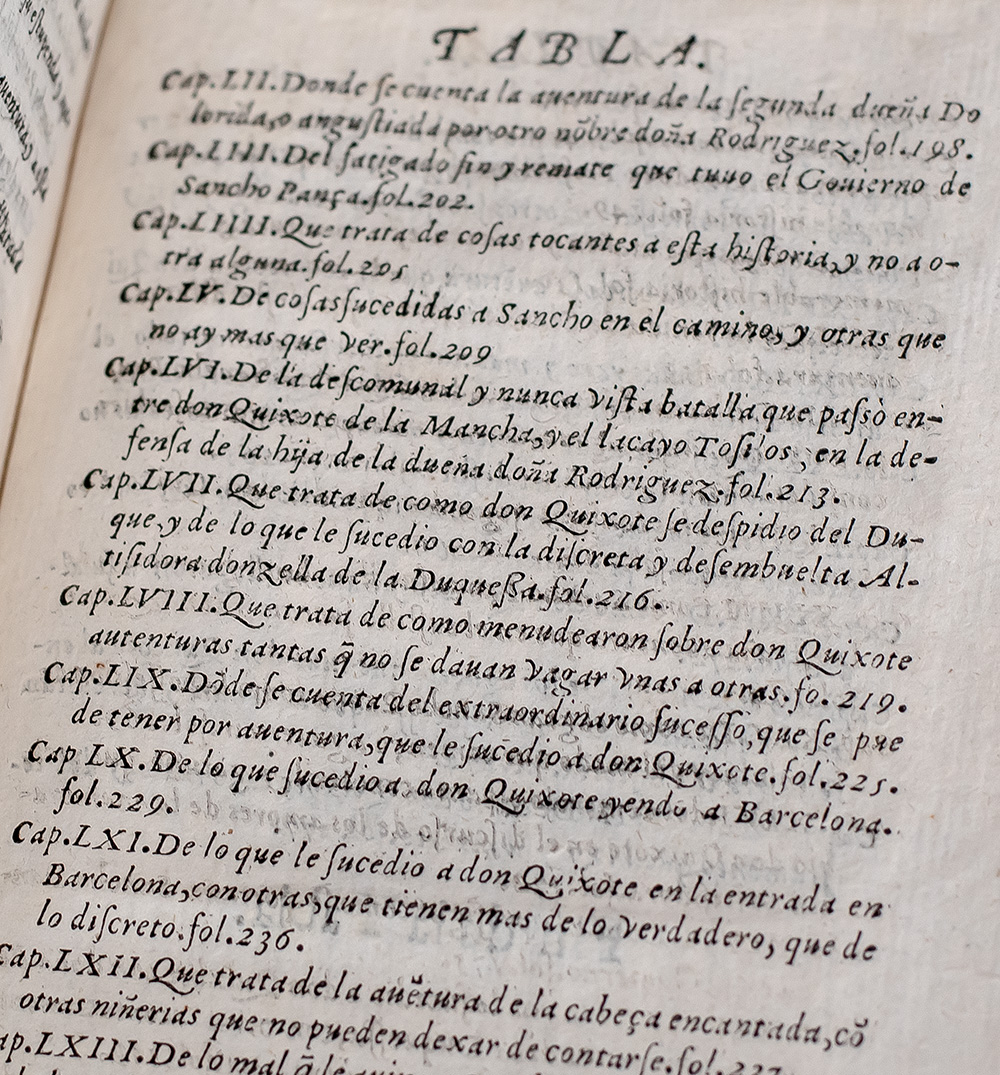 TABLA.
Cap.LII.Donde ſe cuenta la auentura de la ſegunda dueña Do
lorida,o anguſtiada por otro nõbre doña Rodriguez.fol.198.
Cap.LIII.Del fatigado fin y remate que tuuo el Gouierno de
Sancho Pança.fol.202.
Cap.LIIII.Que trata de coſas tocantes a eſta hiſtoria,y no a o-
tra alguna.fol.205
Cap.LV.De coſas ſucedidas a Sancho en el camino, y otras que
no ay mas que ver.fol.209
Cap.LVI.De la deſcomunal y nunca viſta batalla que paſsò en-
tre don Quixote de la Mancha,y el lacayo Toſilos, en la de-
fenſa de la hija de la dueña doña Rodriguez.fol.213.
Cap.LVII.Que trata de como don Quixote ſe deſpidio del Du-
que,y de lo que le ſucedio con la diſcreta y deſembuelta Al-
tiſidora donzella de la Duqueſſa.fol.216.
Cap.LVIII.Que trata de como menudearon ſobre don Quixote
autenturas tantas q̃ no ſe dauan vagar vnas a otras.fo. 219.
Cap.LIX.Dõde ſe cuenta del extraordinario ſuceſſo,que ſe pue
de tener por auentura,que le ſucedio a don Quixote.fol.225.
Cap LX.De lo que ſucedio a don Quixote yendo a Barcelona.
fol.229.
Cap.LXI.De lo que le ſucedio a don Quixote en la entrada en
Barcelona,con otras,que tienen mas de lo verdadero, que de
lo diſcreto.fol.236.
Cap.LXII.Que trata de la auẽtura de la cabeça encantada,cõ
otras niñerias que no pueden dexar de contarſe.fol.
ap.LXIII.De lo mal q̃ le